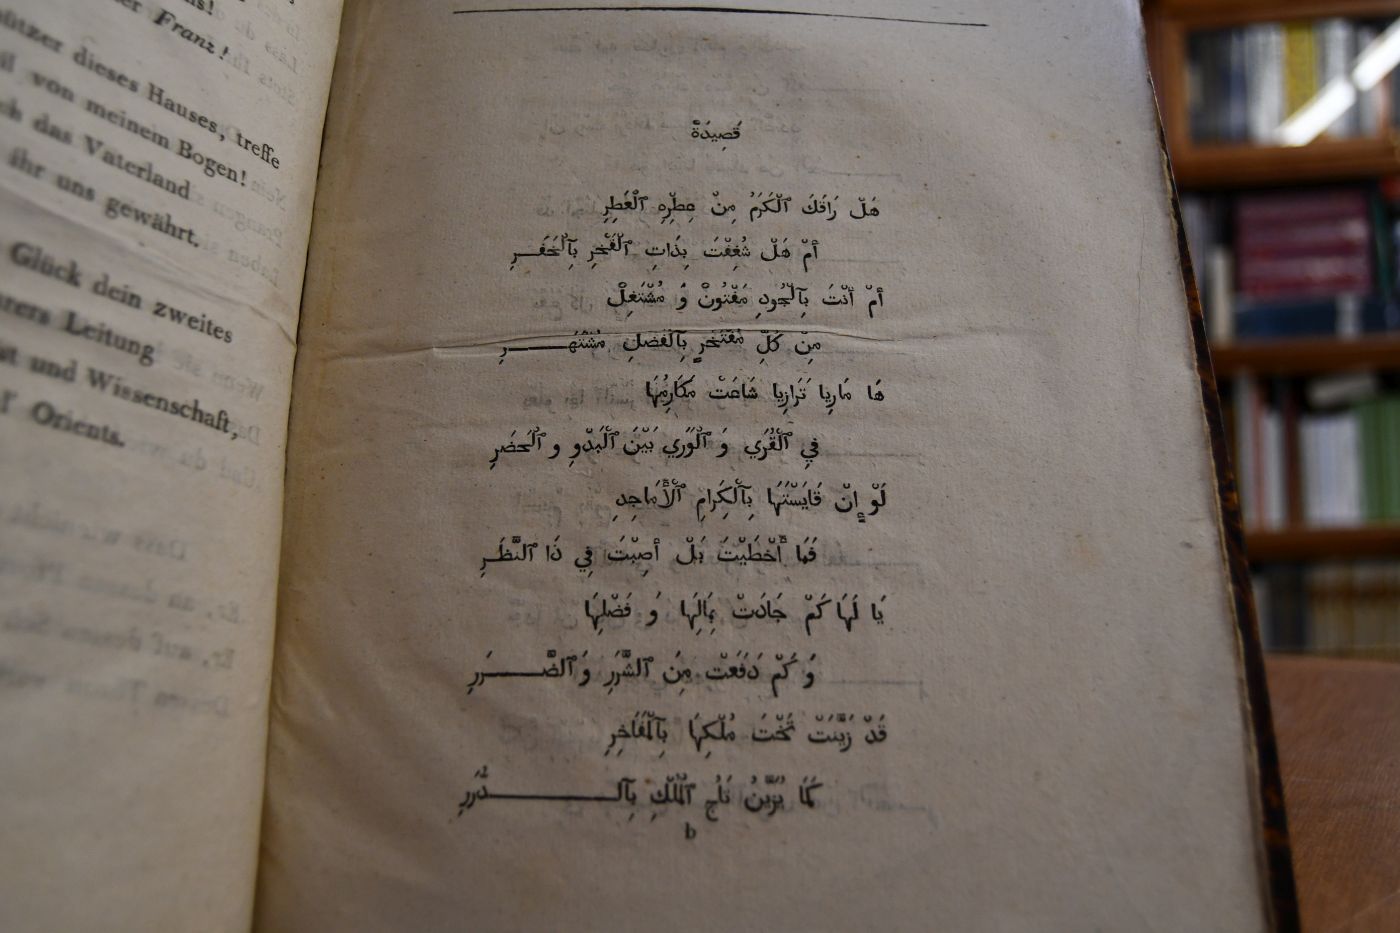 Franz!
dieses Hauses, treffe
von meinem Bogen!
das Vaterland
ihr uns gewährt.
Glück dein zweites
Leitung
und Wissenschaft,
Orients.
قَصِيدَةْ
هَلْ رَاقَكَ ٱلْكَرَمُ مِنْ عِطْرِهِ ٱلْعَطِرِ
أمْ هَلْ شُغِفْتَ بِذَاتِ ٱلْفَخْرِ بِٱلْخَفَـــرِ
أمْ أنْتَ بِٱلْجُودِ مَفْتُونْ وَ مُشْتَغِلْ
مِنْ كُلِّ مُفْتَخرٍ بِٱلْفَضلِ مُشْتَهَـــــرِ
هَا مَارِيا تَرَازِيا شَاعَتْ مَكَارِمُهَا
فِي ٱلْقُرَي وَ ٱلْوَرَي بَيْنَ ٱلْبَدْوِ و ٱلْحَضَرِ
لَوْ إِنْ قَايَسْتَهَا بِٱلْكِرَامِ ٱلْأَمَاجِدِ
فَمَا أَخْطَيْتَ بَلْ أصِبْتَ فِي ذَا ٱلنَّظَـرِ
يَا لَهَا كَمْ جَادَتْ بِمَالِهَا وَ فَضْلِهَا
وَ كَمْ دَفَعَتْ مِنَ ٱلشَّرَرِ وَ ٱلضَّـــــرَرِ
قَدْ زَيَّنَتْ تَخْتَ مُلْكِهَا بِٱلْمَفَاخِرِ
كَمَا يُزَيِّنُ تَاجُ ٱلْمُلْكِ بِٱلـــــــــــدُّرَرِ
b